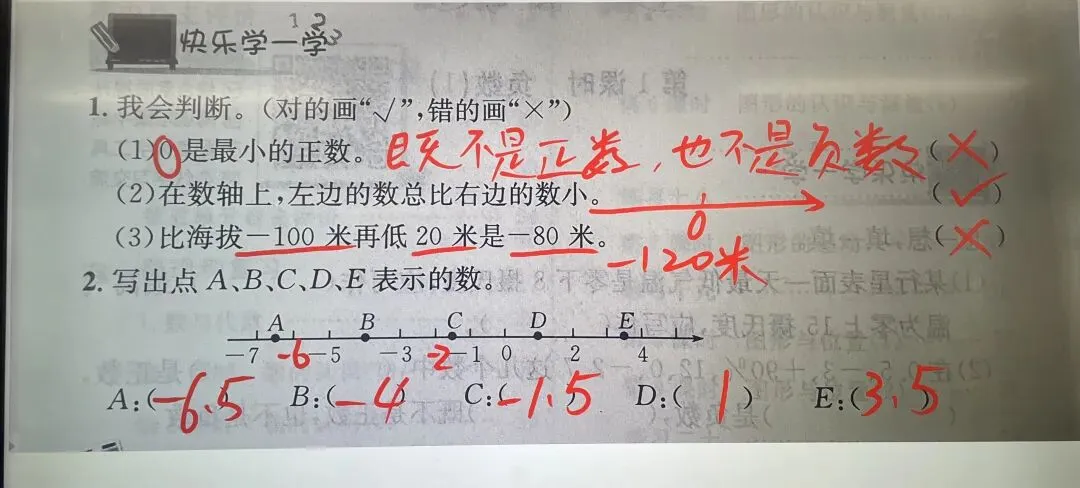 快乐学一学
1 2 3
1. 我会判断。(对的画“√”,错的画“×”)
(1)0是最小的正数。既不是正数,也不是负数(×)
(2)在数轴上,左边的数总比右边的数小。(✓)
0
(3)比海拔-100 米再低 20 米是-80 米。(×)
-120米
2. 写出点 A、B、C、D、E 表示的数。
A B C D E
-7 -6 -5 -3 -2 -1 0 2 4
A:(-6.5) B:(-4) C:(-1.5) D:(1) E:(3.5)